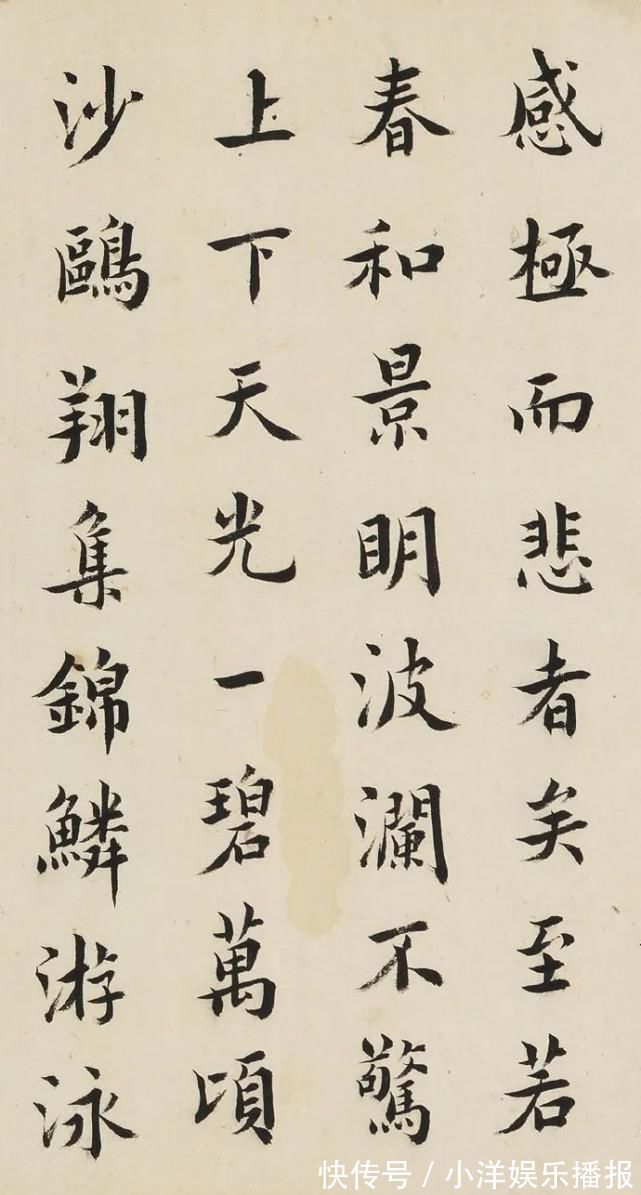 感極而悲者矣至若
春和景明波瀾不驚
上下天光一碧萬頃
沙鷗翔集錦鱗游泳
快传号 / 小洋娱乐播报